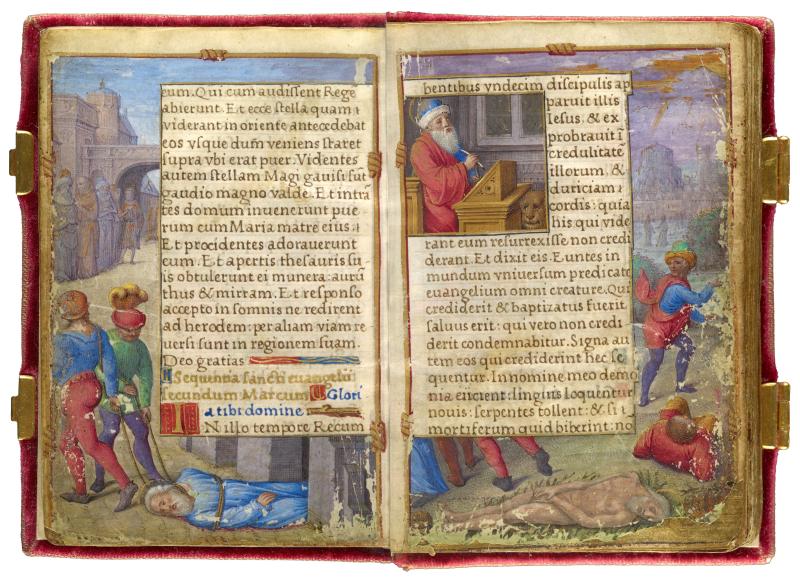 tum. Qui cum audissent Rege
abierunt. Et ecce stella quam
viderant in oriente antecedebat
eos vsque dum veniens staret
supra vbi erat puer. Videntes
autem stellam Magi gauisi sut
gaudio magno valde. Et intrã
tes domum inuenerunt pue
rum cum Maria matre eius.
Et procidentes adorauerunt
eum. Et apertis thesauris su
is obtulerunt ei munera: aurũ
thus & mirram. Et responso
accepto in somnis ne redirent
ad herodem: per aliam viam re
uersi sunt in regionem suam.
Deo gratias
Sequentia sancti euangelii
secundum Marcum Glori
a tibi domine
IN illo tempore Recum
bentibus vndecim discipulis ap
paruit illis
Iesus. & ex
probrauit ĩ
credulitatẽ
illorum. &
duriciam
cordis: quia
his qui vide
rant eum resurrexisse non credi
derant. Et dixit eis. Euntes in
mundum vniuersum predicate
euangelium omni creature. Qui
crediderit & baptizatus fuerit
saluus erit: qui vero non credi
derit condemnabitur. Signa au
tem eos qui crediderint hec se
quentur. In nomine meo demo
nia eiicient: linguis loquentur
nouis: serpentes tollent: & si
mortiferum quid biberint: no